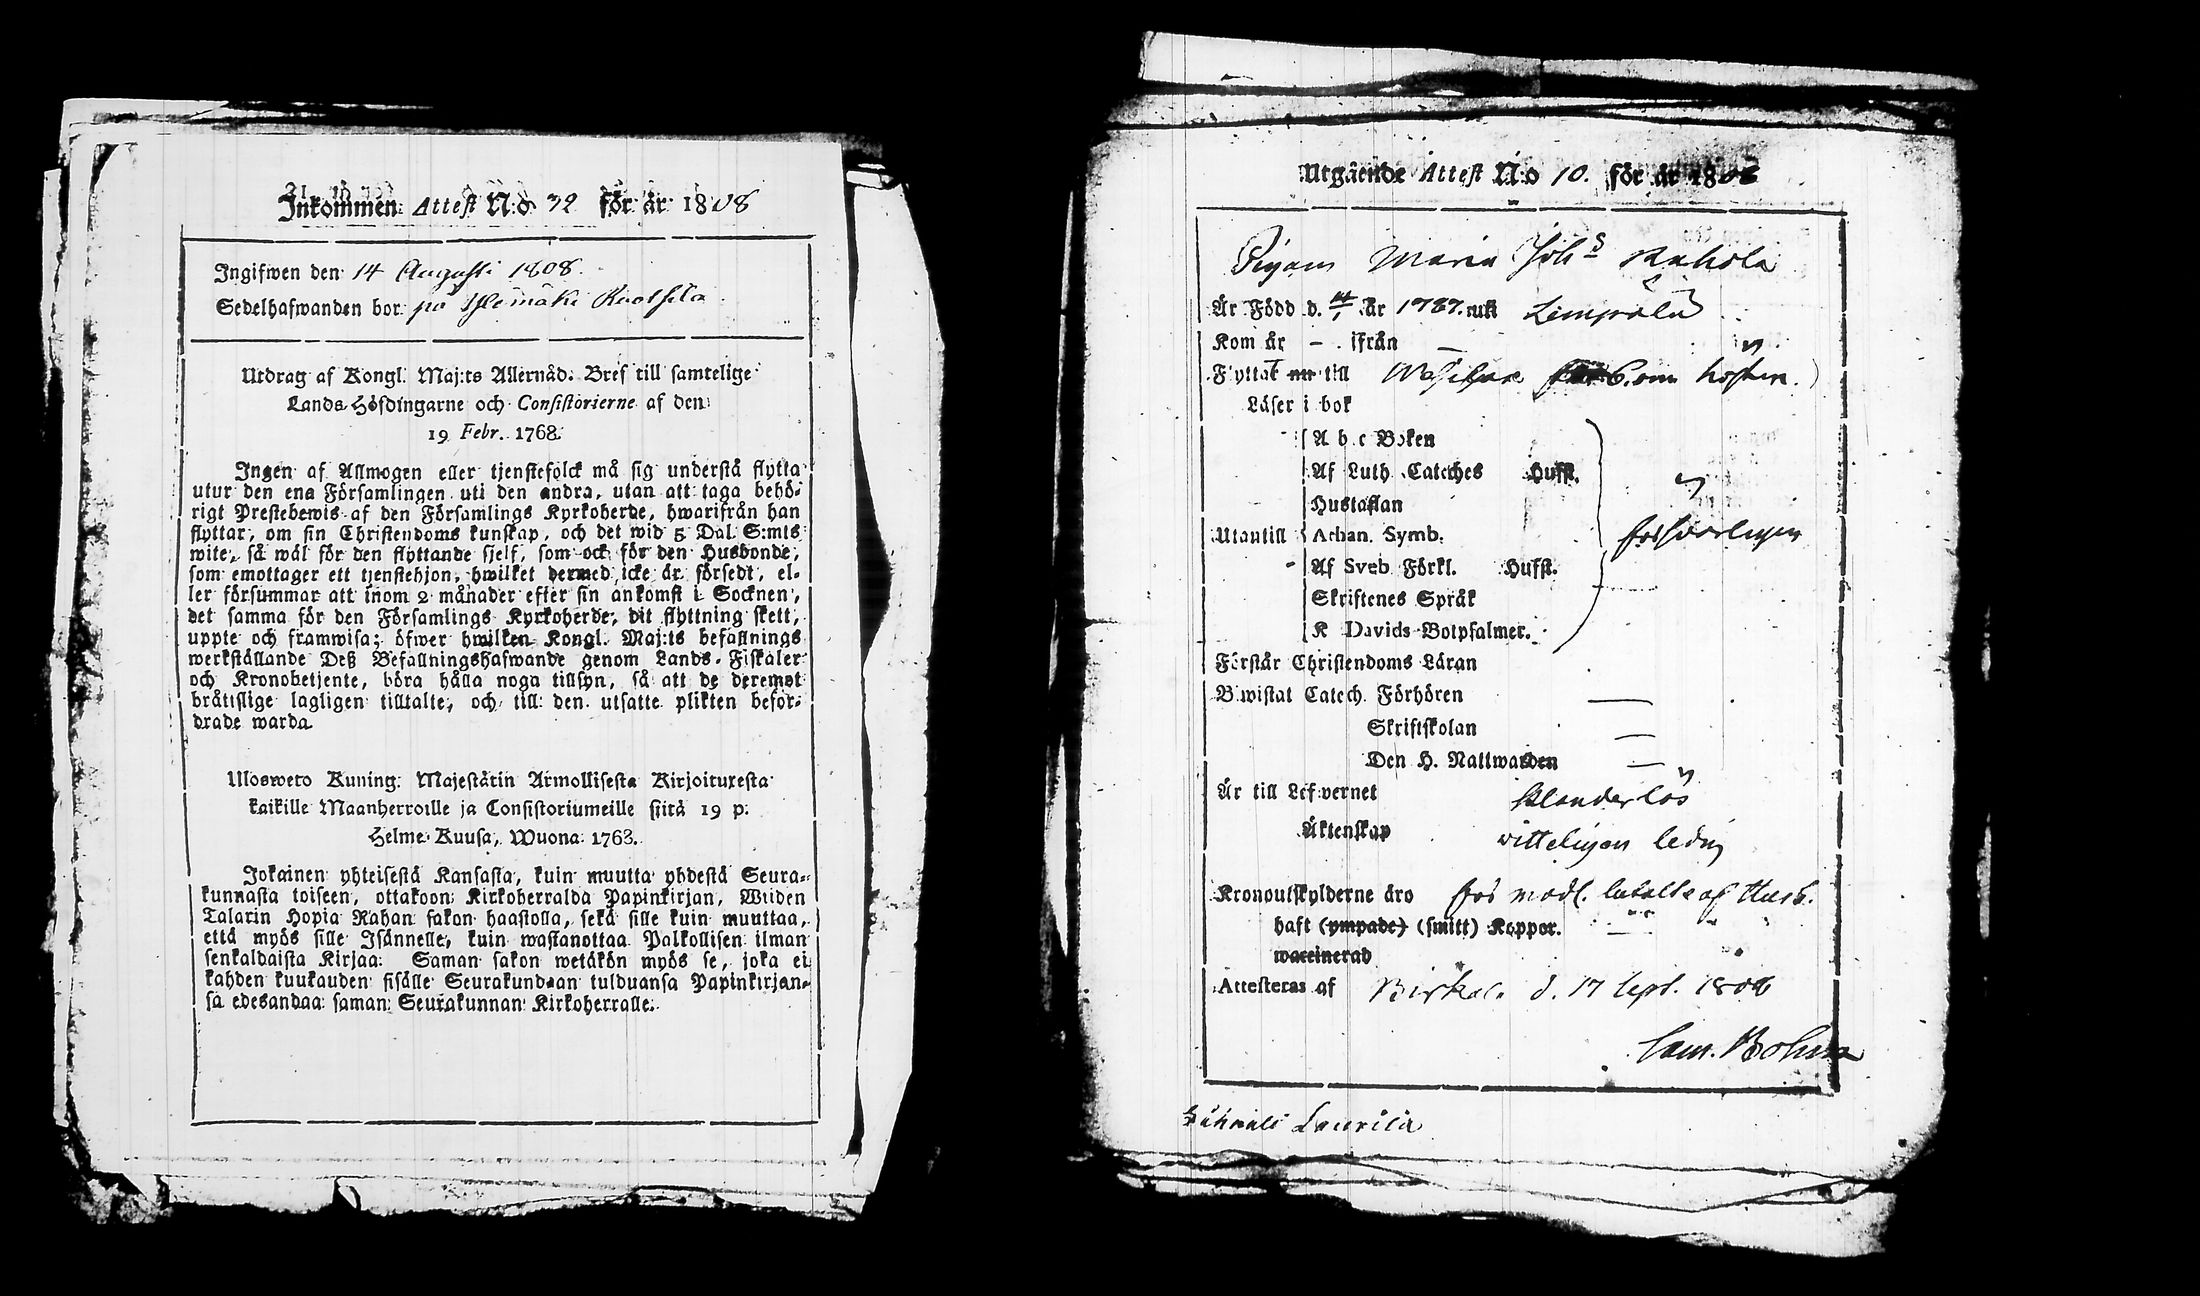 Inkommen Attest N:o 32 för år 1808
Ingifwen den 14 Augusti 1808.
Sedelhafwanden bor på Ylemäki Ruotsila
Utdrag af Kongl. Maj:ts Allernåd. Bref till samtelige
Lands-Höfdingarne och Consistorierne af den
19 Febr. 1768.
Ingen af Allmogen eller tjenstefolck må sig understå flytta
utur den ena Församlingen uti den andra, utan att taga behö-
rigt Prestebewis af den Församlings Kyrkoherde, hwarifrån han
flyttar, om sin Christendoms kunskap, och det wid 5 Dal. S:mts
wite, så wäl för den flyttande sjelf, som ock för den Husbonde,
som emottager ett tjenstehjon, hwilket dermed icke är försedt, el-
ler försummar att inom 2 månader efter sin ankomst i Socknen,
det samma för den Församlings Kyrkoherde, dit flyttning skett,
uppte och framwisa; öfwer hwilken Kongl. Maj:ts befallnings
werkställande Deß Befallningshafwande genom Lands-Fiskaler
och Kronobetjente, böra hålla noga tillsyn, så att de deremot
bråttslige lagligen tilltalte, och till den utsatte plikten befor-
drade warda
Ulosweto Kuning. Majestätin Armollisesta Kirjoituxesta
kaikille Maanherroille ja Consistoriumeille siitä 19 p.
Helme-Kuusa, Wuona 1763.
Jokainen yhteisestä Kansasta, kuin muutta yhdestä Seura-
kunnasta toiseen, ottakoon Kirkoherralda Papinkirjan, Wiiden
Talarin Hopia Rahan sakon haastolla, sekä sille kuin muuttaa,
että myös sille Isännelle, kuin wastanottaa Palkollisen ilman
senkaldaista Kirjaa: Saman sakon wetäkön myös se, joka ei
kahden kuukauden sisälle Seurakundaan tulduansa Papinkirjan-
sa edesandaa saman Seurakunnan Kirkoherralle.
Utgående Attest N:o 10. för år 1808
Pigan Maria Johs Rahola
Är Född d. år 1787. uti Lempälä
Kom år – . ifrån –
Flyttat till om hösten.)
Läser i bok
A b c Boken
Af Luth. Cateches Husfl.
Hustaflan
Utantill Athan. Symb. försvarligen
Af Sveb. Förkl. Husfl.
Skriftenes Språk
K Davids Botpsalmer.
Förstår Christendoms Läran
Biwistat Catech. Förhören —
Skriftskolan —
Den H. Nattwarden —
Är till Lefwernet klanderlös
Äktenskap vitterligen ledig
Kronoutskylderne äro för modl. betalte af Husb.
haft (ympade) (smitt) Koppor. —
waccinerad
Attesteras af Birkala d. 17 Sept. 1808
Sam. Bohm
Laurila